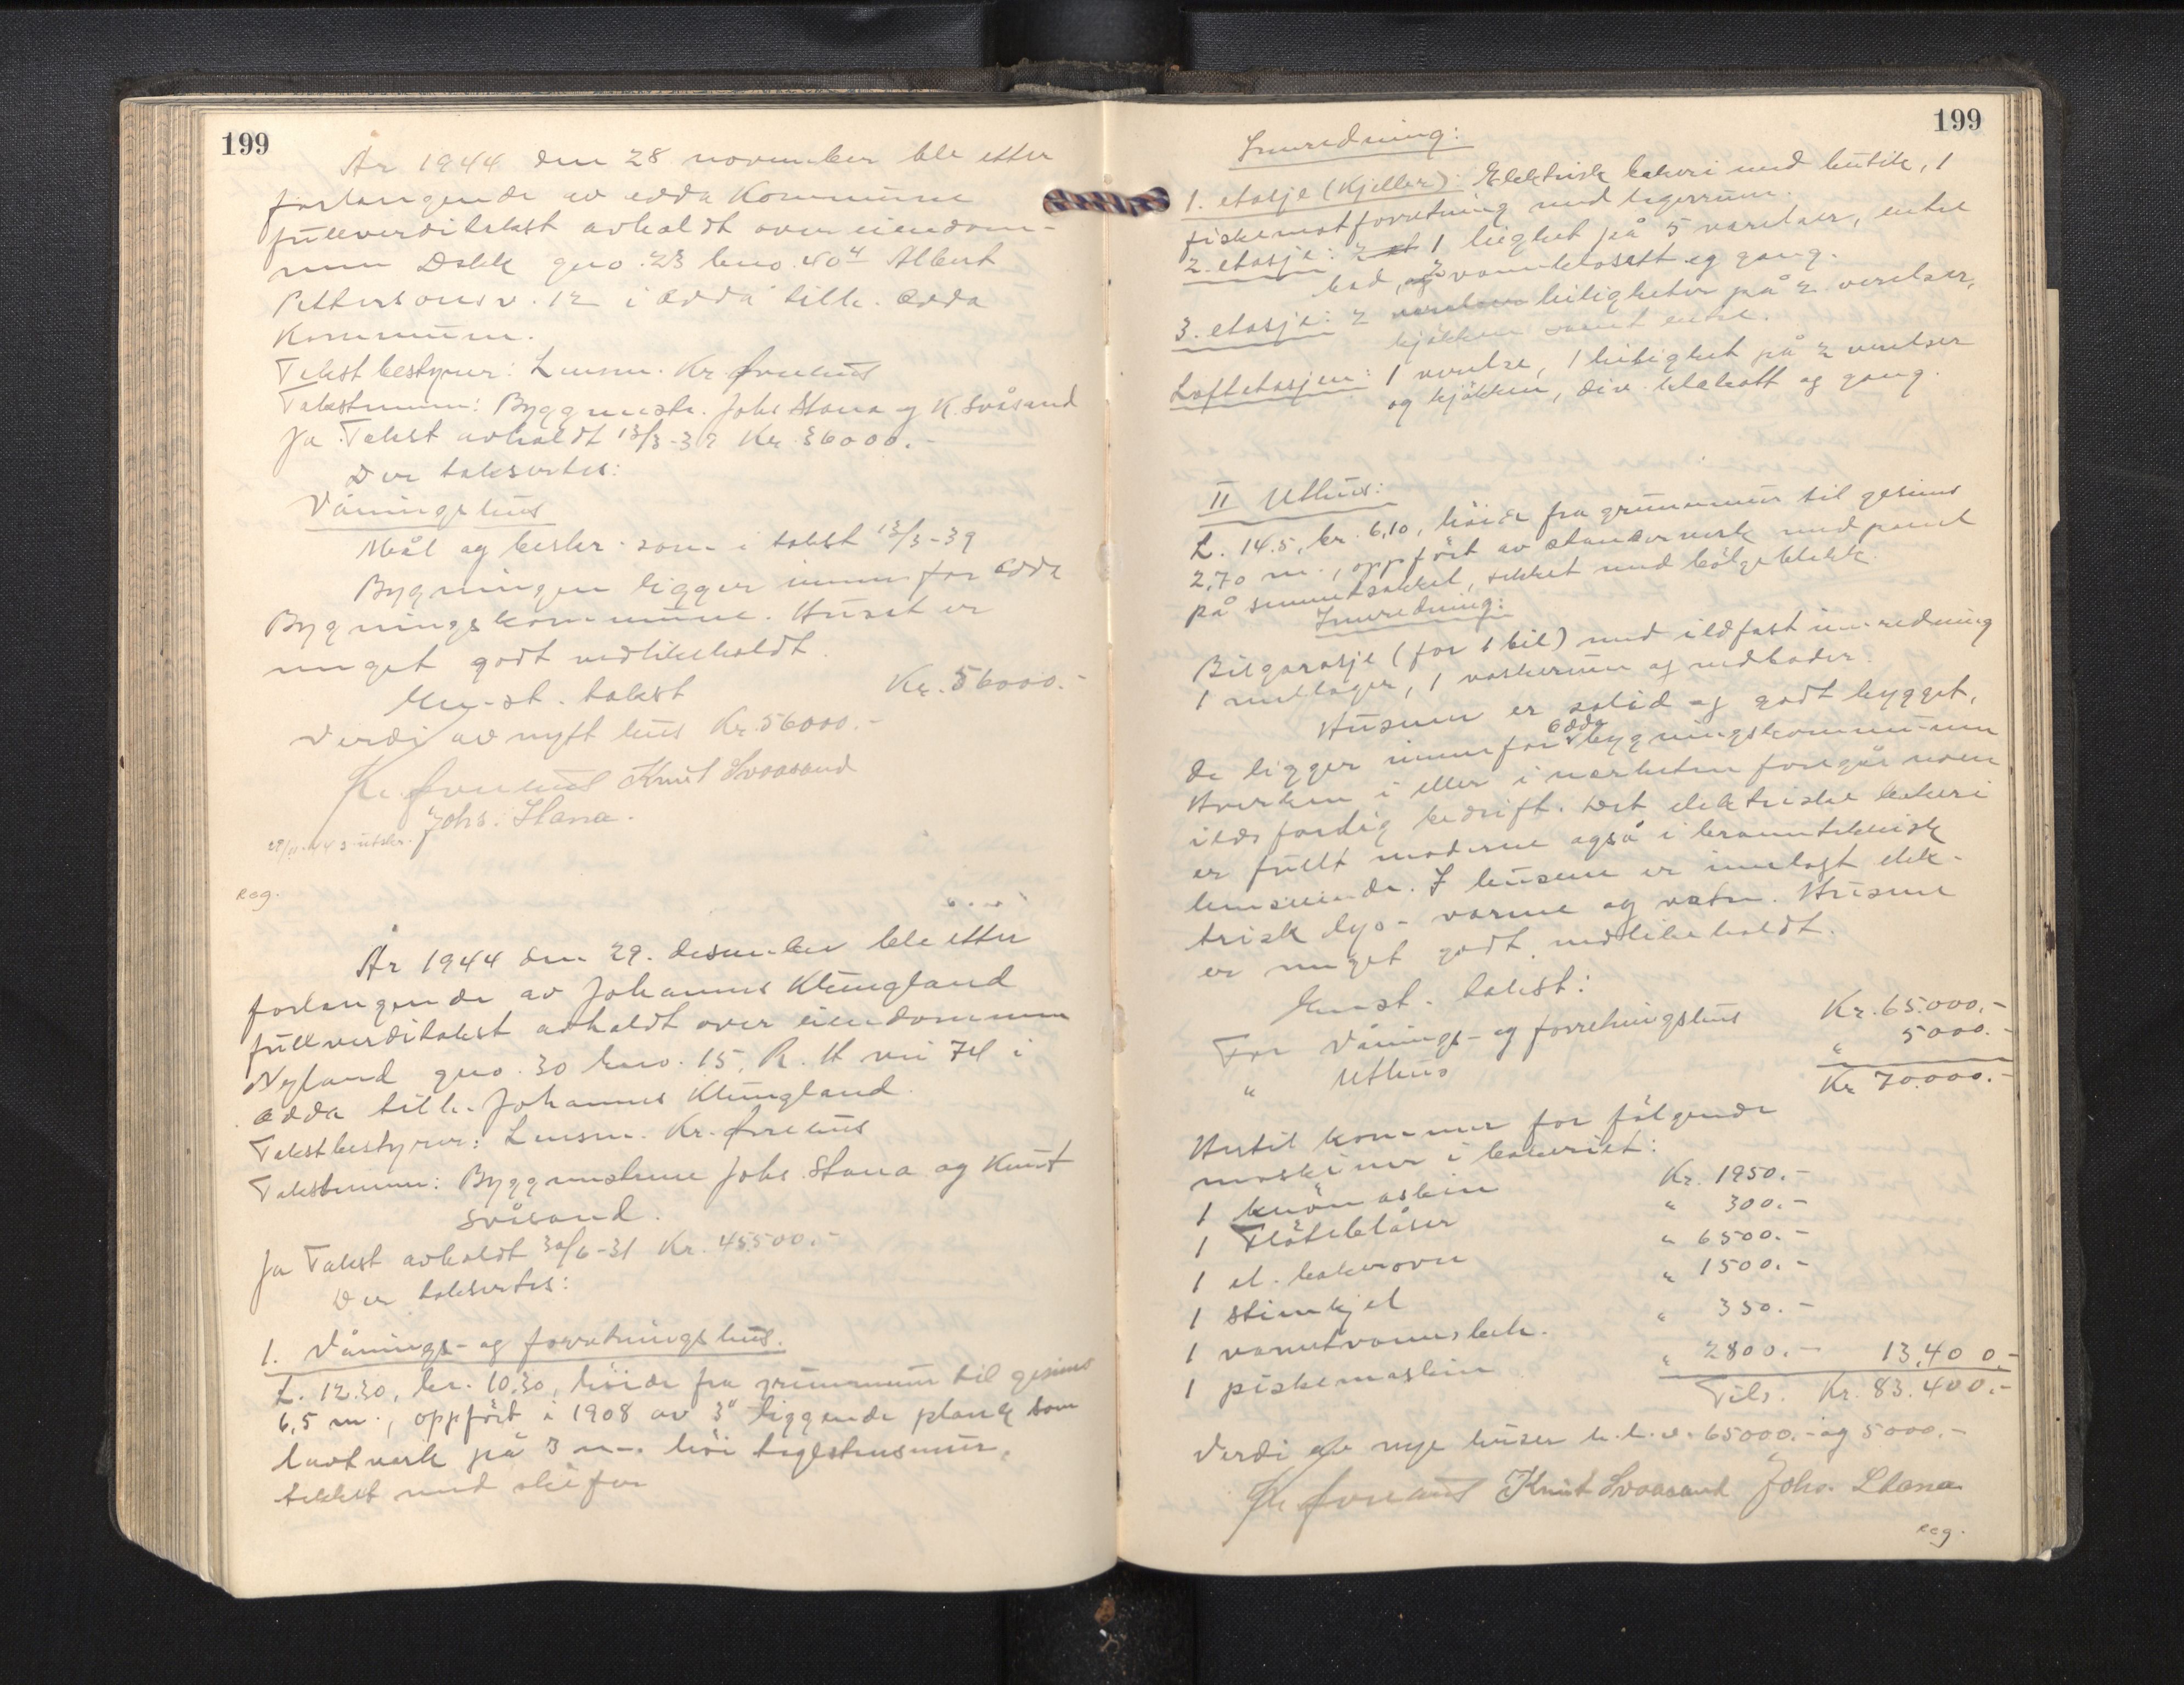 199
År 1944 den 28 november ble etter
forlangende av Odda Kommune
fullverditakst avholdt over eiendom-
men Dokk gno. 23 bno. 404 Albert
Pettersonsv. 12 i Odda tilh. Odda
Kommune.
Takstbestyrer: Lensm. Kr.
Takstmenn: Byggmestr. Johs Stana og K. Svåsand
Ja Takst avholdt 13/3-39 Kr. 36000.-
Der takserteś:
Våningshus
Mål og beskr. som i takst 13/3-39
Bygningen ligger innenfor Odda
Bygningskommune. Huset er
meget godt vedlikeholdt.
takst Kr. 56000.-
Verdi av nytt hus Kr. 56000.-
Kr. Knut Svaasand
Johs. Stana.
29/11-44 3 utskr.
Reg.
År 1944 den 29. desember ble etter
forlangende av Johannes Klungland
fullverditakst avholdt over eiendommen
Nyland gno. 30 bno. 15, R. H. vei 74 i
Odda tilh. Johannes Klungland.
Takstbestyrer: Lensm. Kr.
Takstmenn: Byggmestrene Johs. Stana og Knut
Svåsand.
Ja Takst avholdt 30/6-31 Kr. 45500.-
Der taksertes:
1. Vånings- og forretningshus.
L. 12.30, br. 10.30, höide fra grunnmur til gesims
6,5 m., oppfört i 1908 av 3" liggende plank som
lavtverk på 3 m. höi teglstensmur,
tekket med skifer
199
Innredning:
1. etasje (Kjeller): Elektrisk bakeri med butik, 1
fiskematforretning med lagerrum.
2. etasje: 1 leighet på 5 værelser, entre
bad, vannklosett og gang.
3. etasje: 2 leiligheter på 2 verelser,
kjökken samt entre.
Loftetasjen: 1 verelse, 1 leilighet på 2 verelser
og kjökken, div. klekott og gang.
II Uthus:
L. 14.5, br. 6,10, höide fra grunnmur til gesims
2,70 m., oppfört av stenderverk med panel
på sementsokkel, tekket med bölgeblekk.
Innredning:
Bilgarasje (for 1 bil) med ildfast innredning
1 mellager, 1 vaskerum og vedboder.
Husene er solid og godt bygget,
de ligger innenfor Odda bygningskommune
Hverken i eller i nærheten foregår noen
ildsfarlig bedrift. Det elektriske bakeri
er fullt moderne også i brannteknisk
henseende. I husene er innlagt elek-
trisk lys- varme og vatn. Husene
er meget godt vedlikeholdt.
takst:
For Vånings- og forretningshus Kr. 65.000.-
" Uthus " 5000.-
Kr 70.000.-
Hertil kommer for fölgende
maskiner i bakeriet:
1 knamaskin Kr. 1950.-
1 Flöteblåser " 300.-
1 el. bakerovn " 6500.-
1 stimkjel " 1500.-
1 varmtvannsbeh. " 350.-
1 piskemaskin " 2800.- 13.400.-
Tils. Kr. 83.400.-
Verdi av nye huser h.h.v. 65000.- og 5000.-
Kr. Knut Svaasand Johs. Stana
reg.